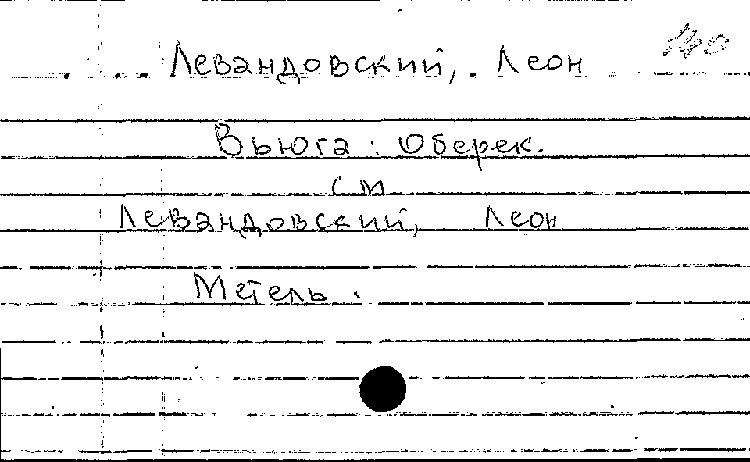 Левандовский, Леон
Вьюга: Оберек.
см
Левандовский, Леон
Метель.